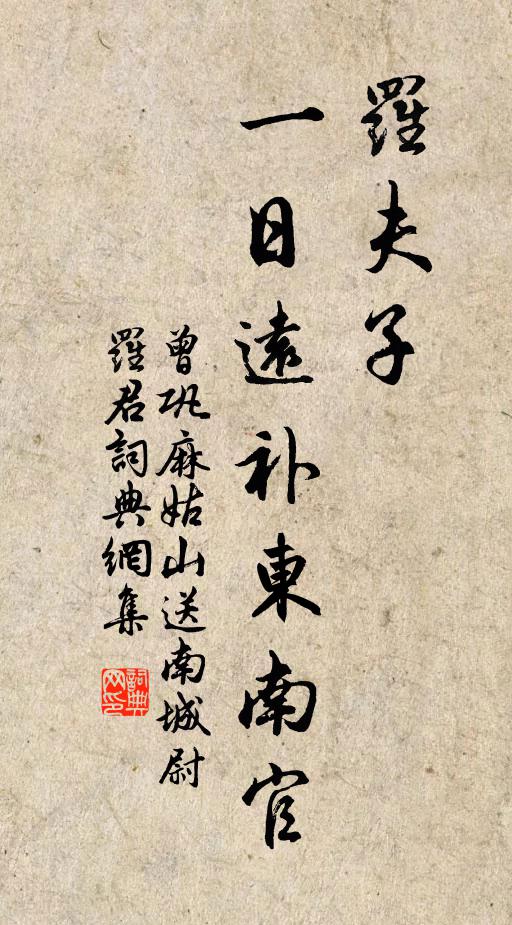 羅夫子
一日遠补東南官
曾巩麻姑山送南城尉
羅君詞典網集
詞典网印